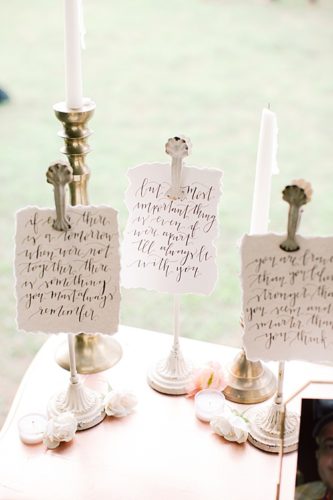 if ever there
is a tomorrow
when we're not
together there
is something
you must always
remember
but most
important thing
is even if
we're apart
I'll always be
with you
you are brav
than you belie
stronger tha
you seem and
smarter than
you think